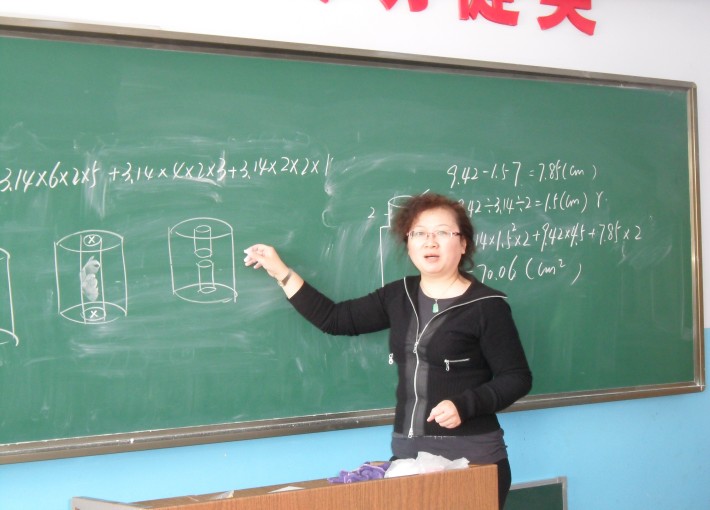 健美
3.14×6×2×5 +3.14×4×2×3+3.14×2×2×1
×
×
2
9.42-1.57=7.85(cm)
.42÷3.14÷2=1.5(cm) r
14×1.5²×2+9.42×4.5+7.85×2
70.06 (cm²)